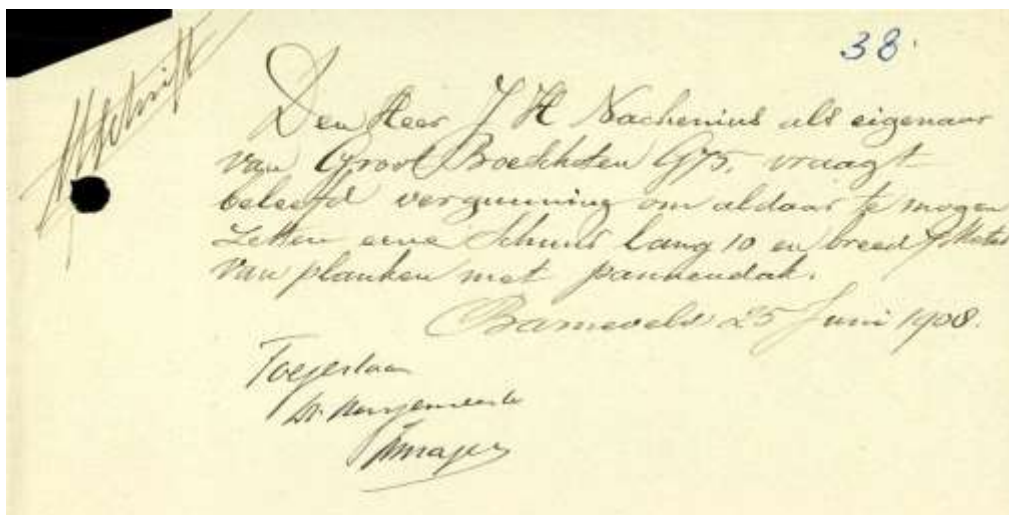 38.
Afschrift
Den Heer J H Nachenius als eigenaar
van Groot Boeschoten G75. vraagt
beleefd vergunning om aldaar te mogen
Zetten eene Schuur lang 10 en breed Meter
van planken met pannendak.
Barneveld 25 Juni 1908.
Toegestaan
De Burgemeester